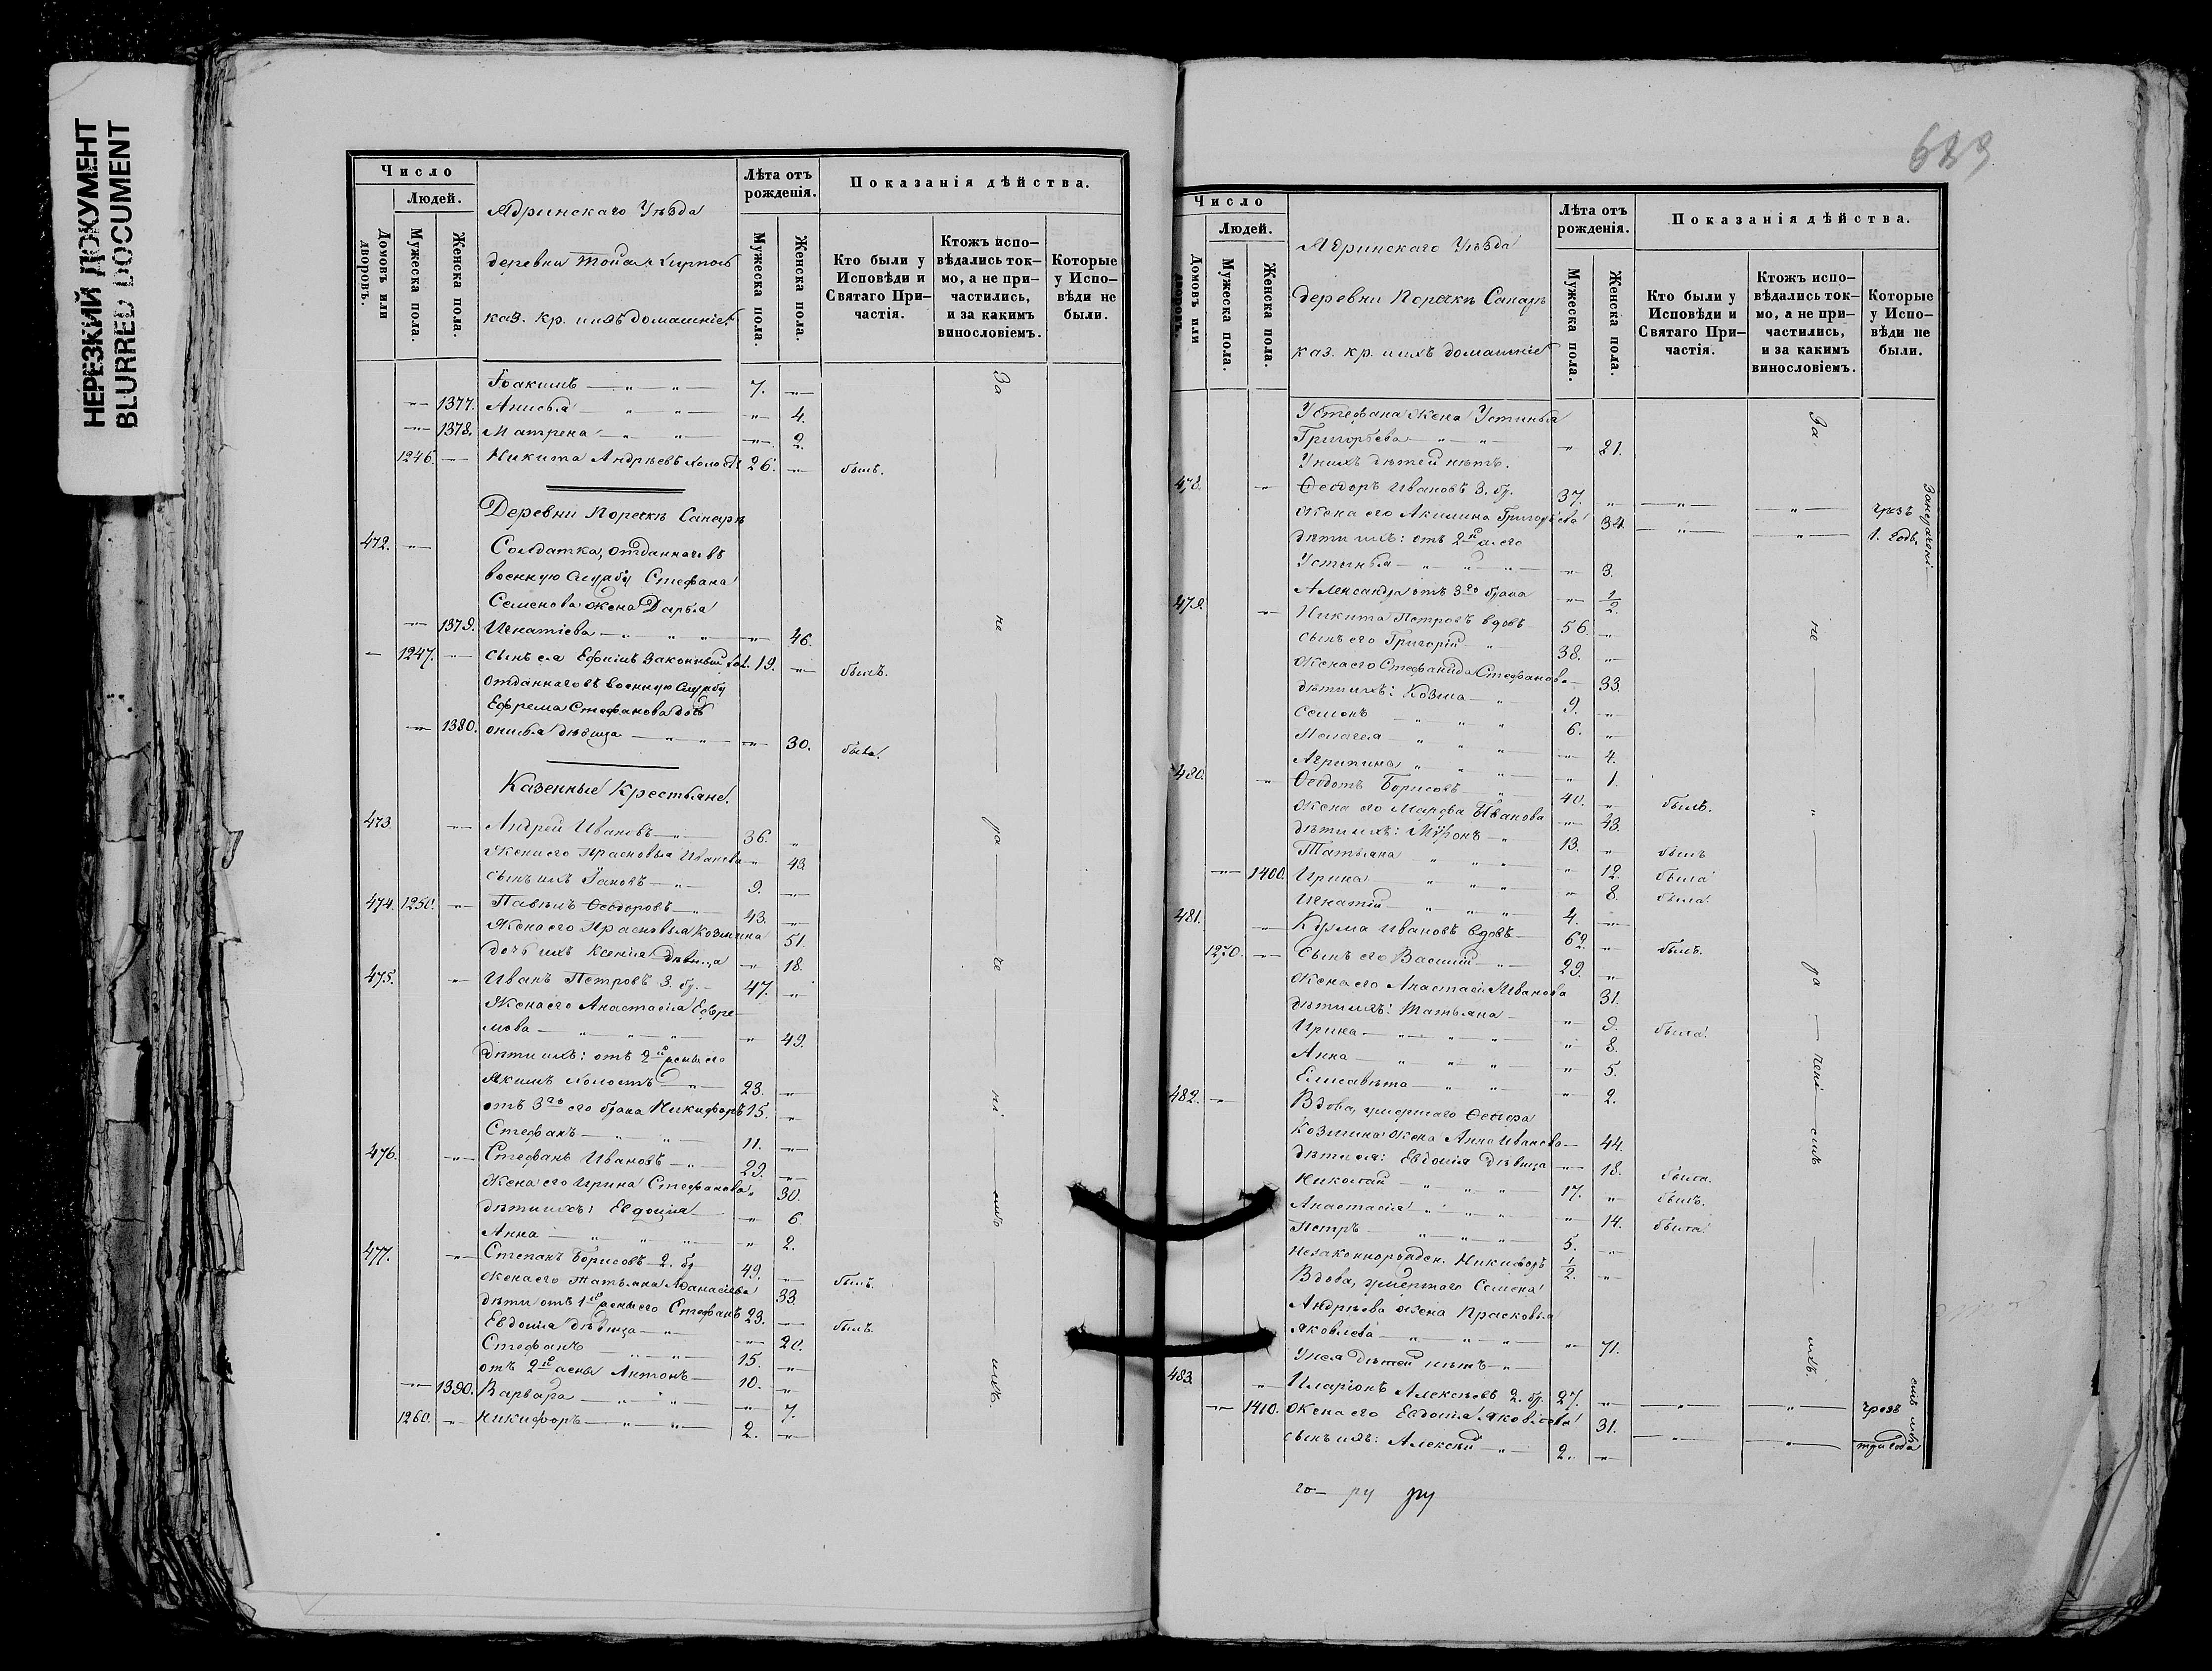 НЕРЕЗКИЙ ДОКУМЕНТ
BLURRED DOCUMENT
Число
Людей.
Домовъ или дворовъ.
Мужеска пола.
Женска пола.
Ядринскаго Уѣзда
деревни
каз. кр. и ихъ домашніе
Лѣта отъ рожденія.
Мужеска пола.
Женска пола.
Показанія дѣйства.
Кто были у Исповѣди и Святаго При-частія.
Ктожъ испо-вѣдались ток-мо, а не при-частились, и за какимъ винословіемъ.
Которые у Испо-вѣди не были.
Іоакимъ — „ — „ — 7. —„—
—„— 1377. Анисья — „ — „ — —„— 4.
—„— 1378. Матрена — „ — „ — —„— 2.
1246. —„— Никита Андрѣевъ холостъ 26. —„— былъ.
Деревни Порѣкъ Санаръ
472. —„— Солдатка, отданнаго въ
военную службу Стефана
Семенова жена Дарья
—„— 1379. Игнатіева — „ — „ — „ — —„— 46.
— 1247. —„— сынъ ея Ефимъ законный хол. 19. —„— былъ.
отданнаго въ военную службу
Ефрема Стефанова дочь
—„— 1380. онисья дѣвица — „ — „ — —„— 30. была.
Казенные Крестьяне.
473. —„— Андрей Ивановъ — „ — 36. „
Жена его Прасковья Иванова — „ 43.
сынъ ихъ Іаковъ — „ — 9. —„—
474. 1250. —„— Павелъ Ѳеодоровъ — „ — 43. —„—
Жена его Прасковья Козмина 51.
дочь ихъ Ксенія дѣвица —„— 18.
475. —„— Иванъ Петровъ 3. бр. — 47. —„—
Жена его Анастасія Ефре-
мова — „ — „ — „ — —„— 49.
дѣти ихъ: отъ 2й жены его
Якимъ холостъ — „ — 23. —„—
отъ 3го его брака Никифоръ 15. —„—
Стефанъ — „ — „ — 11. —„—
476. —„— Стефанъ Ивановъ — „ — 29. —„—
Жена его Ирина Стефанова „ 30.
дѣти ихъ: Евдокія — —„— 6.
Анна — „ — „ — „ — —„— 2.
477. —„— Степанъ Борисовъ 2. бр. 49. —„— былъ.
Жена его Татьяна Аѳанасіева 33.
дѣти отъ 1й жены его Стефанъ 23. —„— былъ.
Евдокія дѣвица — „ — —„— 20.
Стефанъ — „ — „ — 15. —„—
отъ 2й жены Антонъ — 10. —„—
—„— 1390. Варвара — „ — „ — —„— 7.
1260. —„— Никифоръ — „ — „ — 2. —„—
За
не
ра
че
ні
емъ
ихъ.
689
Число
Людей.
Домовъ или дворовъ.
Мужеска пола
Женска пола
Ядринскаго Уѣзда
деревни Порѣкъ Санаръ
каз. кр. и ихъ домашніе
Лѣта отъ рожденія.
Мужеска пола.
Женска пола.
Показанія дѣйства.
Кто были у Исповѣди и Святаго При-частія.
Ктожъ испо-вѣдались ток-мо, а не при-частились, и за какимъ винословіемъ.
Которые у Испо-вѣди не были.
У Стефана жена Устинья
Григорьева — „ — „ — „ 21.
У нихъ дѣтей нѣтъ.
478. —„— Ѳеодоръ Ивановъ 3. бр. 37. „ —„— —„— чрезъ
Жена его Акилина Григорьева 34. —„— —„— 1. годъ.
дѣти ихъ: отъ 2й ж. его
Устинья — „ — „ — „ — —„— 3.
Александра отъ 3го брака —„— 1/2.
479. —„— Никита Петровъ вдовъ 56. „
сынъ его Григорій „ 38. „
Жена его Стефанида Стефанова — 33.
дѣти ихъ: Козма — „ — 9. „
Семенъ — „ „ „ 6. „
Пелагея — „ „ „ — —„— 4.
Агрипина „ „ „ — „ 1.
480. —„— Ѳеодотъ Борисовъ — „ — 40. „ былъ.
Жена его Марѳа Иванова —„— 43.
дѣти ихъ: Мѵронъ — „ 13. „ былъ
Татьяна „ „ „ „ 12. была
—„— 1400. Ирина — „ „ „ — „ 8. была.
Игнатій — „ „ „ — 4. —„—
481. —„— Кузма Ивановъ вдовъ — 62. „ былъ.
1270. —„— Сынъ его Василій — „ — 29. „
Жена его Анастасія Иванова 31.
дѣти ихъ: Татьяна — „ 9. была.
Ирина — „ — „ „ — „ 8.
Анна — „ „ „ — „ 5.
Елисавета — „ „ — „ 2.
482. —„— Вдова, умершаго Ѳеодора
Козмина жена Анна Иванова — 44.
дѣти ея: Евдокія дѣвица —„— 18. была.
Николай — „ „ „ — 17. „ былъ.
Анастасія „ „ „ — „ 14. была.
Петръ — „ „ „ — 5. „
Незаконнорожден. Никифоръ 1/2. —„—
Вдова, умершаго Семена
Андрѣева жена Прасковья
Яковлева — „ — „ „ — —„— 71.
У нея дѣтей нѣтъ — „ —
483. —„— Иларіонъ Алексѣевъ 2. бр. 27. —„— —„— —„— чрезъ
—„— 1410. Жена его Евдокія Яковлева 31. —„— —„— три года
сынъ ихъ: Алексѣй — „ — 2. —„—
За
не
ра
чені
емъ
ихъ.
За нерачені
емъ ихъ
го — ру ру